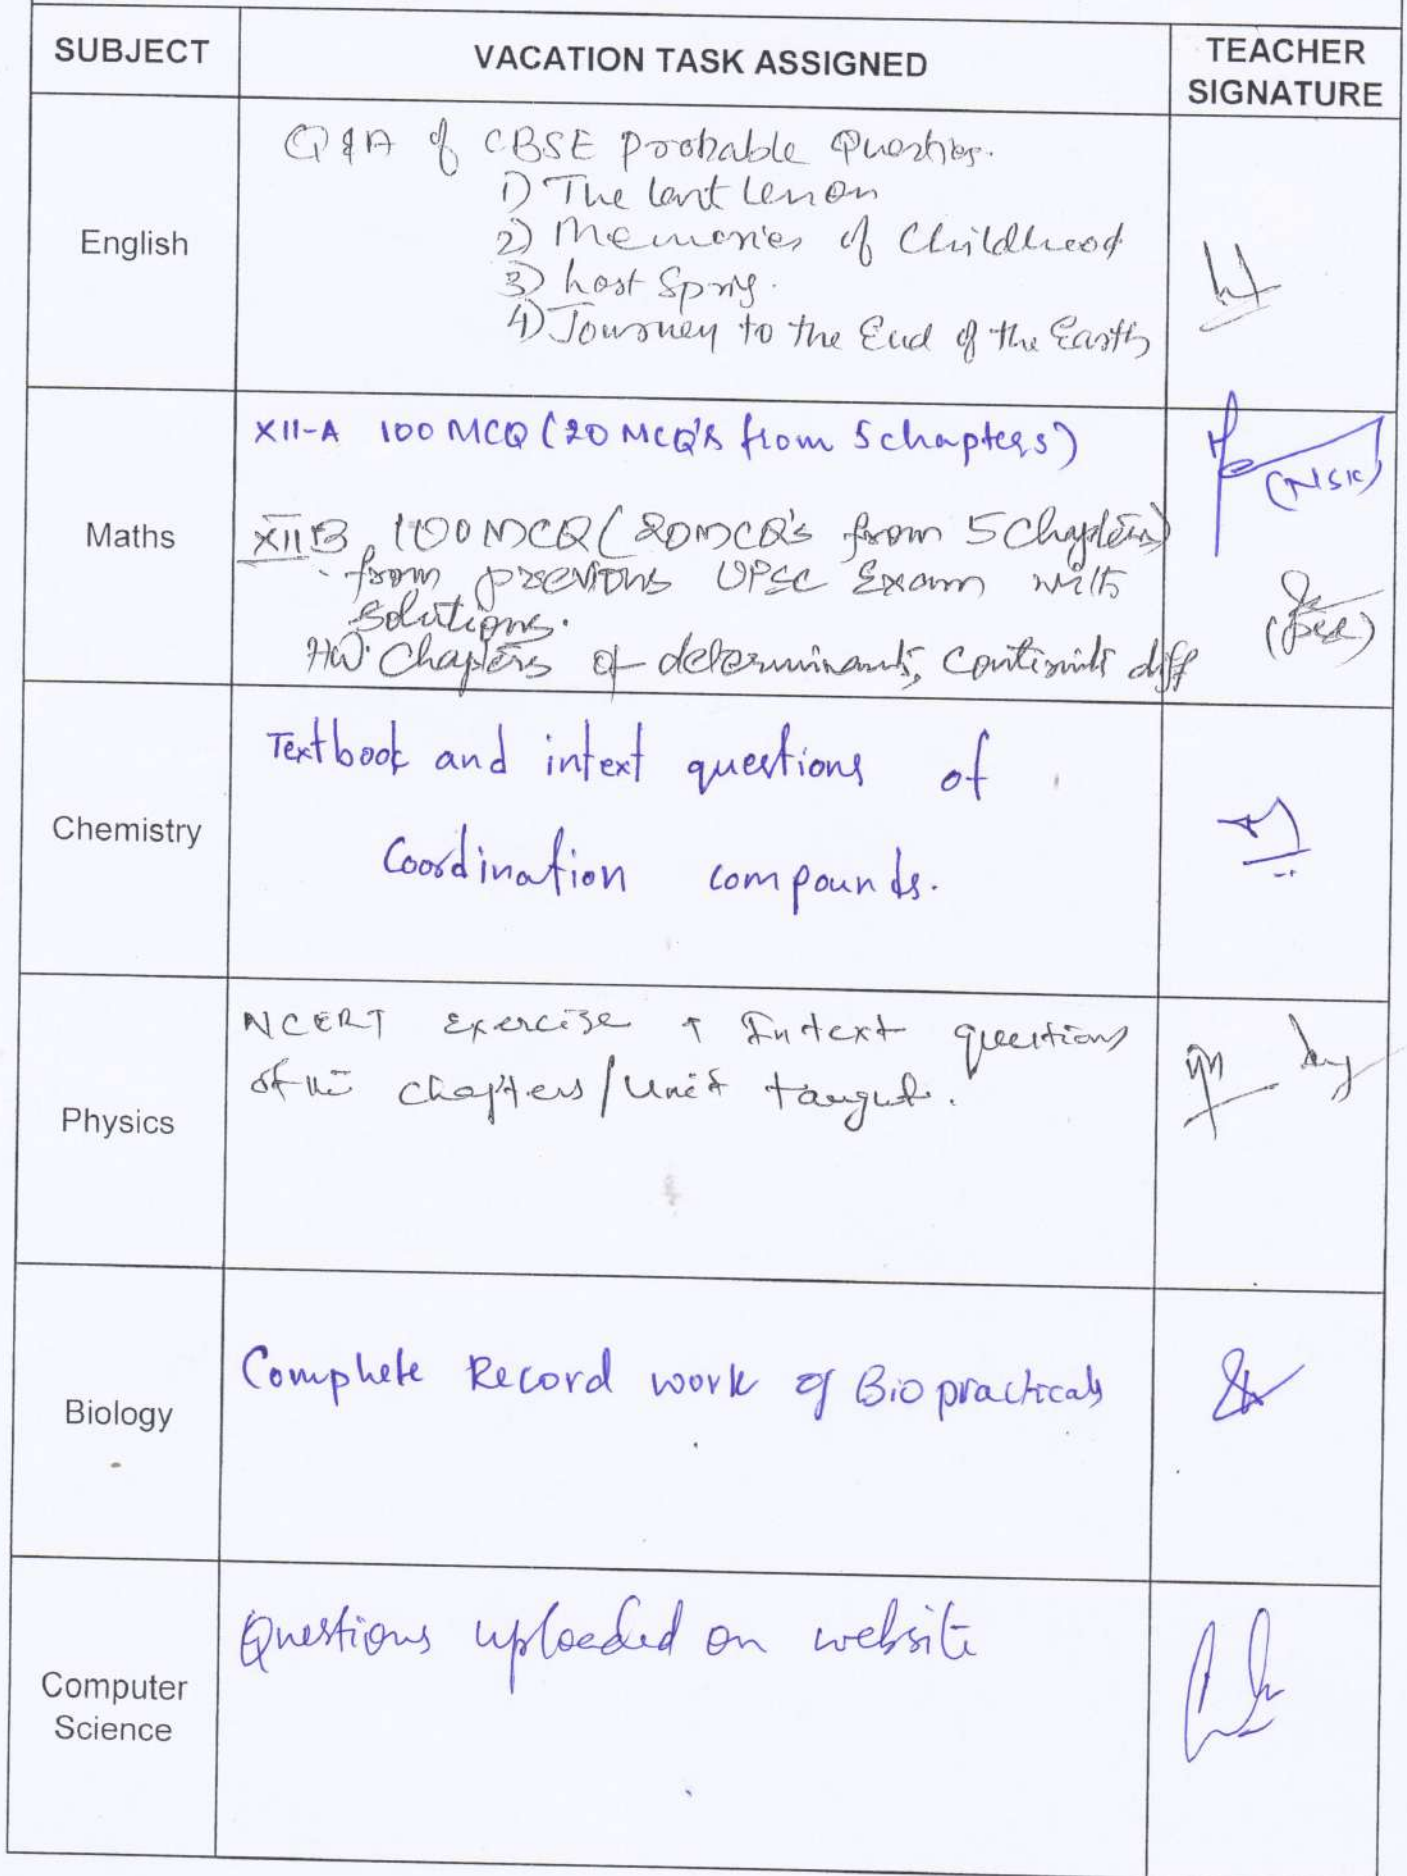 SUBJECT
VACATION TASK ASSIGNED
TEACHER
SIGNATURE
English
Q & A of CBSE Probable Questions.
1) The last lesson
2) Memories of Childhood
3) Lost Spring.
4) Journey to the End of the Earth
Maths
XII-A 100 MCQ (20 MCQ's from 5 chapters)
(NSK)
XII B 100 MCQ (20 MCQ's from 5 Chapters)
from previous UPSC Exam with
solutions.
HW. Chapters of determinants, diff
Chemistry
Textbook and intext questions of
Coordination compounds.
Physics
NCERT Exercise + Intext questions
of the chapters/Unit taught.
Biology
Complete Record work of Bio practicals
Computer
Science
Questions uploaded on website